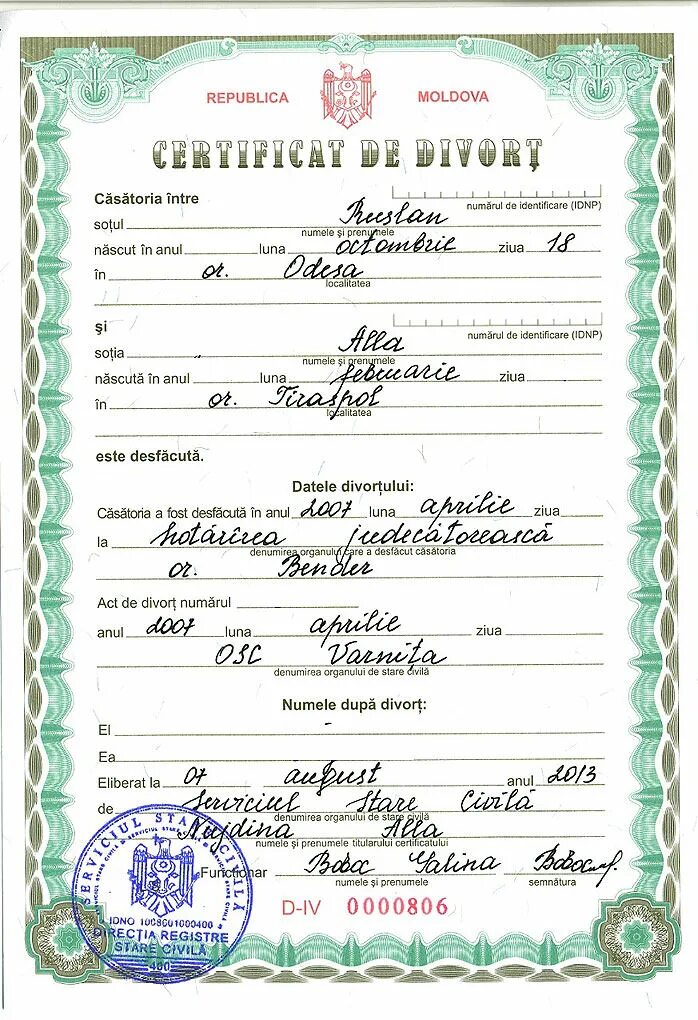 REPUBLICA MOLDOVA
CERTIFICAT DE DIVORȚ
Căsătoria între
numărul de identificare (IDNP)
soțul Ruslan
numele și prenumele
născut în anul luna octombrie ziua 18
în or. Odesa
localitatea
și
numărul de identificare (IDNP)
soția Alla
numele și prenumele
născută în anul luna februarie ziua
în or. Tiraspol
localitatea
este desfăcută.
Datele divorțului:
Căsătoria a fost desfăcută în anul 2007 luna aprilie ziua
la hotărîrea judecătorească
denumirea organului care a desfăcut căsătoria
or. Bender
Act de divorț numărul
anul 2007 luna aprilie ziua
OSC Varnița
denumirea organului de stare civilă
Numele după divorț:
El -
Ea
Eliberat la 07 august anul 2013
de Serviciul Stare Civilă
denumirea organului de stare civilă
Nujdina Alla
numele și prenumele titularului certificatului
Funcționar Boboc Galina
numele și prenumele semnătura
D-IV 0000806
SERVICIUL STARE CIVILĂ
IDNO 1008601000400
DIRECȚIA REGISTRE
STARE CIVILĂ
400